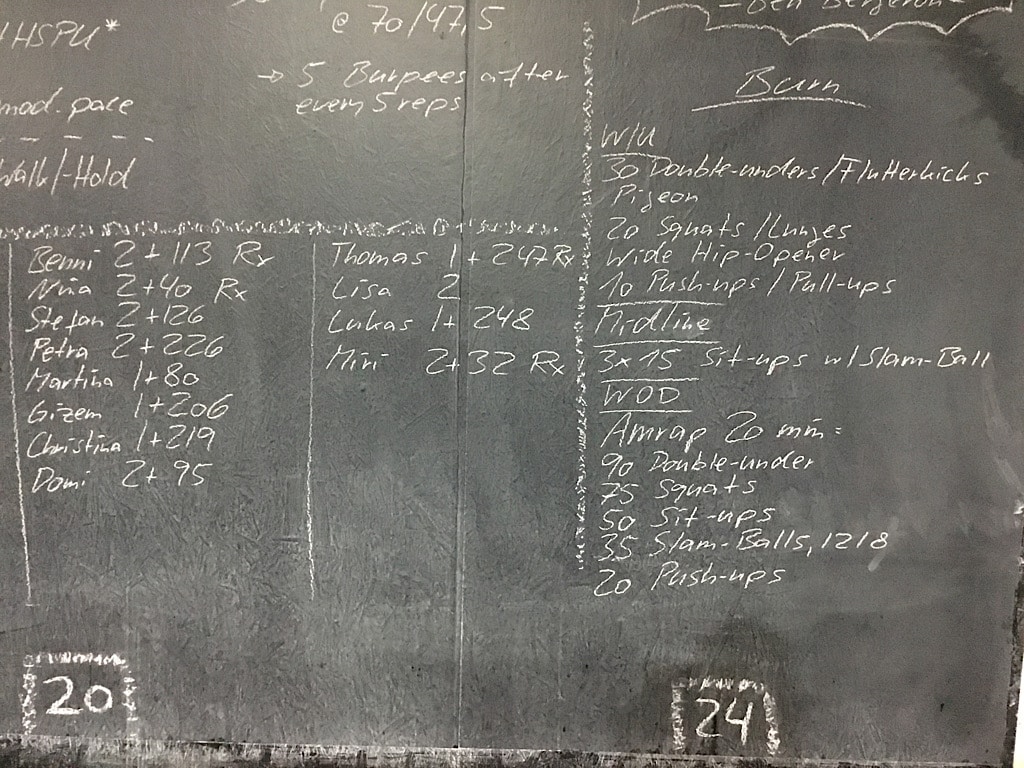 1HSPU*
mod. pace
Walk/-Hold
@ 70/47,5
→ 5 Burpees after
every 5 reps
Benni 2+113 Rx
Nina 2+40 Rx
Stefan 2+126
Petra 2+226
Martina 1+80
Gizem 1+206
Christina 1+219
Domi 2+95
Thomas 1+247 Rx
Lisa 2
Lukas 1+248
Mini 2+32 Rx
20
-Ben Bergeron-
Burn
W/U
30 Double-unders/Flutterkicks
Pigeon
20 Squats/Lunges
Wide Hip-Opener
10 Push-ups/Pull-ups
Midline
3x15 Sit-ups w/Slam-Ball
WOD
Amrap 20 min:
90 Double-under
75 Squats
50 Sit-ups
35 Slam-Balls, 12/8
20 Push-ups
24